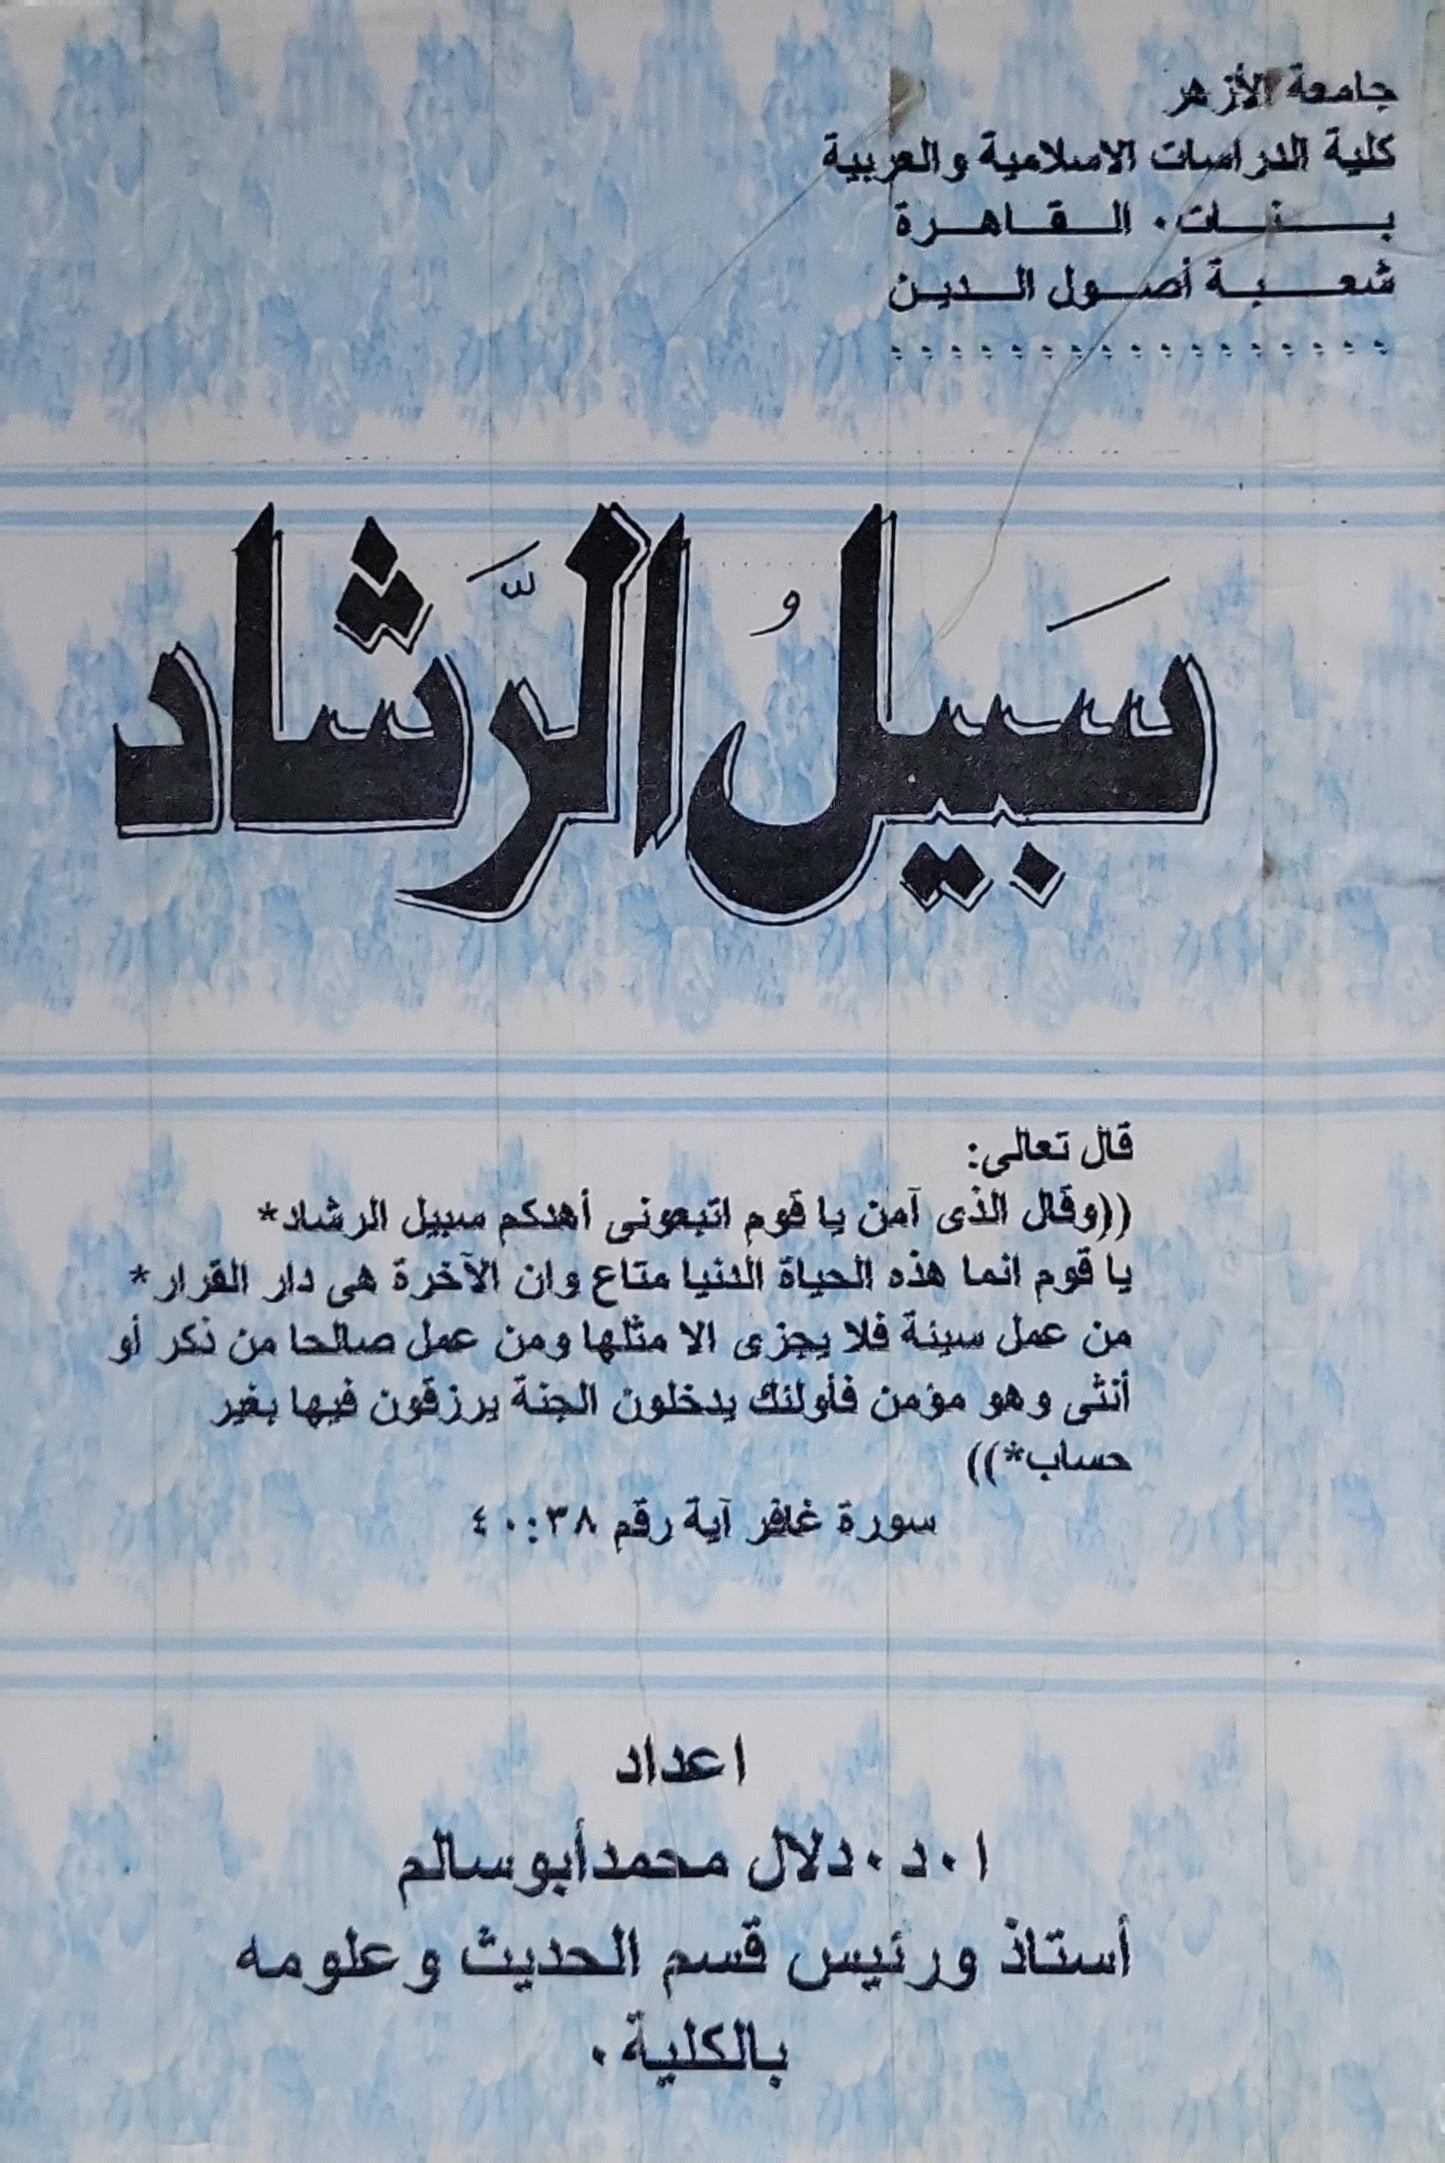 جامعة الأزهر
كلية الدراسات الاسلامية والعربية
بنات. القاهرة
شعبة أصول الدين
سَبيلُ الرَّشاد
قال تعالى:
((وقال الذى آمن يا قوم اتبعونى أهدكم سبيل الرشاد*
يا قوم انما هذه الحياة الدنيا متاع وان الآخرة هى دار القرار*
من عمل سيئة فلا يجزى الا مثلها ومن عمل صالحا من ذكر أو
أنثى وهو مؤمن فأولئك يدخلون الجنة يرزقون فيها بغير
حساب*))
سورة غافر آية رقم ٣٨:٤٠
اعداد
ا.د.دلال محمدأبوسالم
أستاذ ورئيس قسم الحديث وعلومه
بالكلية.